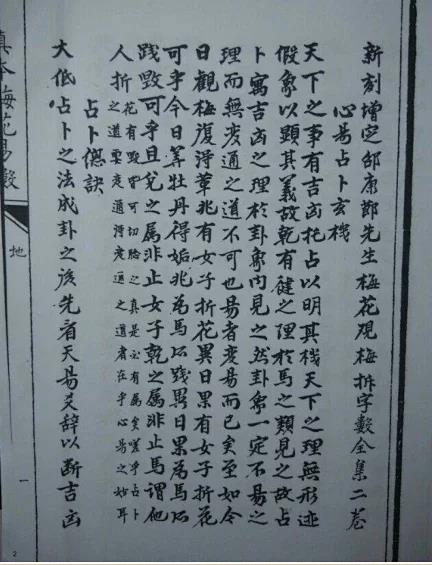 新刻增定邵康節先生梅花观梅拆字數全集二卷
心易占卜玄機
天下之事有吉凶托占以明其機天下之理無形迹
假象以顕其義故乾有健之理於馬之類見之故占
卜寓吉凶之理於卦象內見之然卦象一定不易之
理而無变通之道不可也易者变易而已矣至如今
日觀梅復得革兆有女子折花異日果有女子折花
可乎今日筭牡丹得姤兆為馬所践異日果為馬所
践毀可乎且兌之属非止女子乾之属非止馬謂他
人折花有毀皆可切驗之真是必有属矣嗟乎占卜
之道要变通得变通之道者在乎心易之妙耳
占卜總訣
大低占卜之法成卦之後先看天易爻辞以断吉凶
真本梅花易數
地
一
2